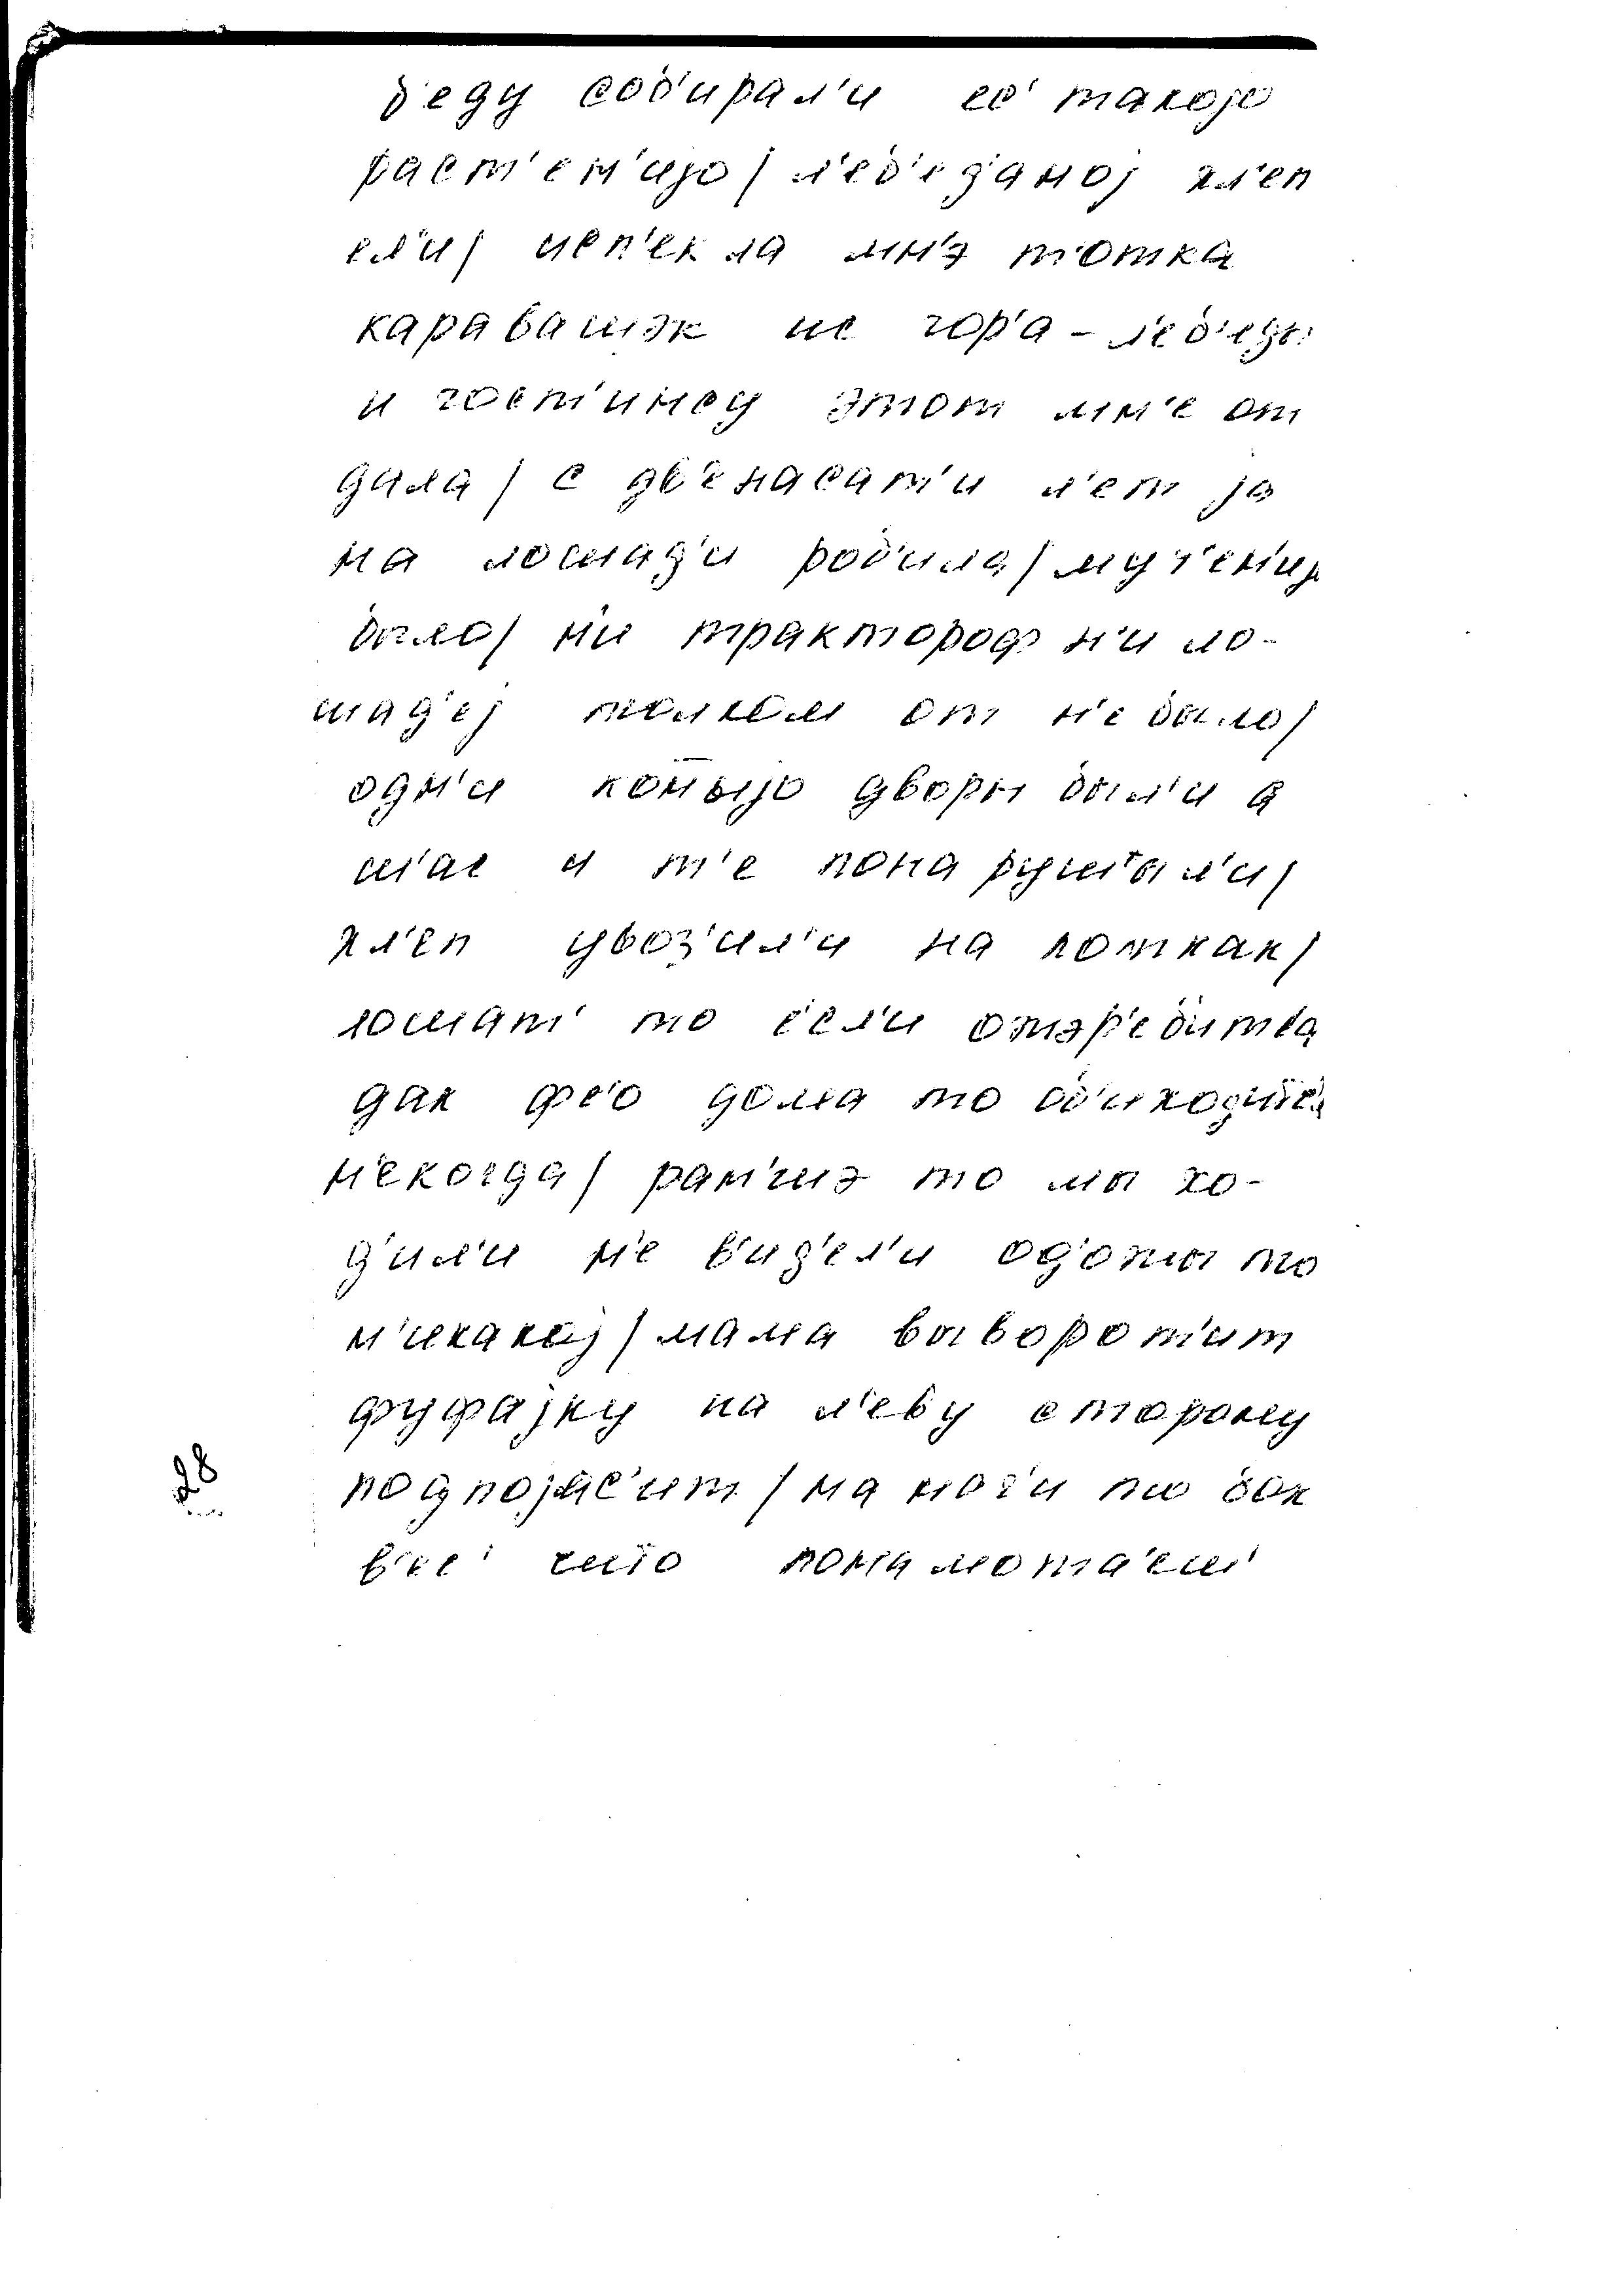 б'еду соб'ирал'и ес' такојо
раст'ен'ијо / л'еб'еданој хл'еп
ел'и / исп'екла мн'э т'отка
каравашэк ис гор'а - л'еб'еды
и гост'инсу этот мн'е от
дала / с дв'енасат'и л'ет ја
на лошад'и роб'ила / муч'ен'ијо
было / н'и трактороф н'и ло-
шад'еј толком от н'е было /
одн'и коныјо дворы был'и а
ш'ас и т'е понарушал'и /
хл'еп увоз'ил'и на
лошат' то есл'и ожэр'еб'итса
дак фс'о дома то об'иходит'
н'екогда / ран'шэ то мы хо-
д'ил'и н'е в'ид'ел'и од'ожы то
н'икакој / мама выворот'ит
фуфајку на л'еву сторону
подпојас'ит / на ног'и то бох
в'ес' што понамота'еш'
28